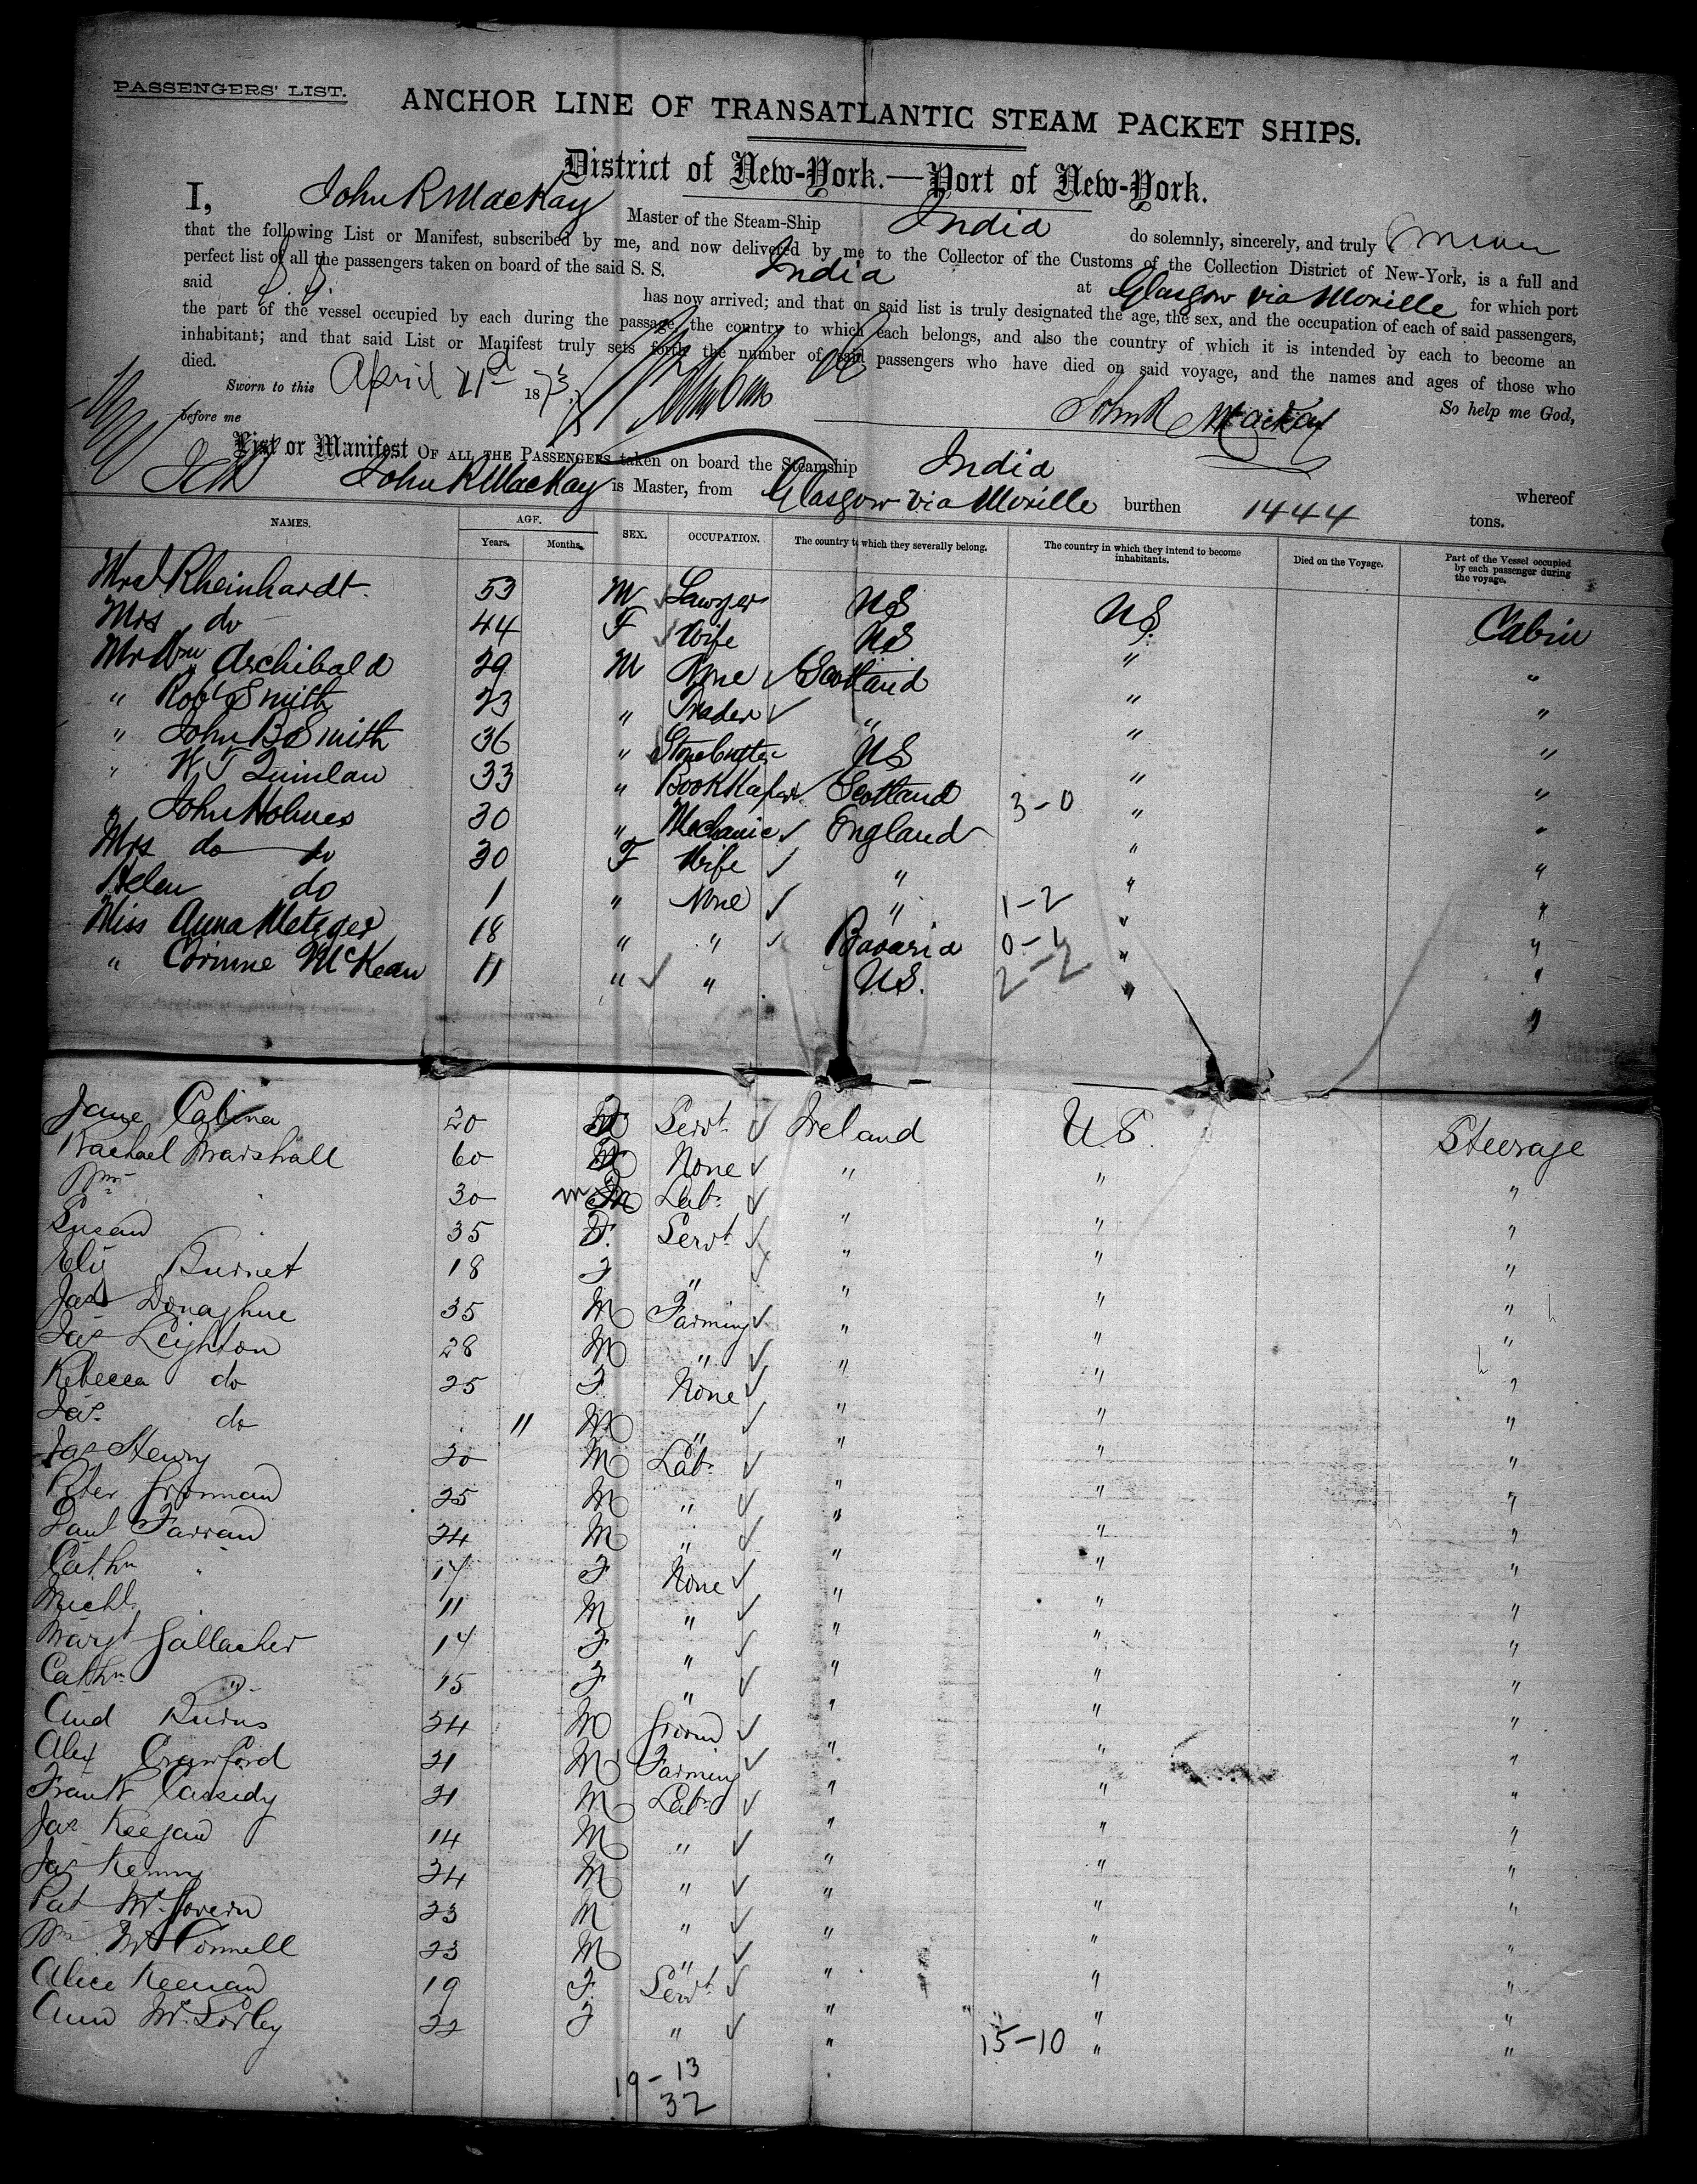 PASSENGERS' LIST.
ANCHOR LINE OF TRANSATLANTIC STEAM PACKET SHIPS.
District of New-York.—Port of New-York.
I, John R MacKay Master of the Steam-Ship India do solemnly, sincerely, and truly
that the following List or Manifest, subscribed by me, and now delivered by me to the Collector of the Customs of the Collection District of New-York, is a full and
perfect list of all the passengers taken on board of the said S. S. India at Glasgow via Moville for which port
said S. S. has now arrived; and that on said list is truly designated the age, the sex, and the occupation of each of said passengers,
the part of the vessel occupied by each during the passage, the country to which each belongs, and also the country of which it is intended by each to become an
inhabitant; and that said List or Manifest truly sets forth the number of said passengers who have died on said voyage, and the names and ages of those who
died.
Sworn to this April 21st 1873. So help me God,
before me John R MacKay
List or Manifest OF ALL THE PASSENGERS taken on board the Steamship India whereof
John R MacKay is Master, from Glasgow via Moville burthen 1444 tons.
NAMES. AGE. Years. Months. SEX. OCCUPATION. The country to which they severally belong. The country in which they intend to become inhabitants. Died on the Voyage. Part of the Vessel occupied by each passenger during the voyage.
Rheinhardt 53 M Lawyer US US Cabin
Mrs do 44 F Wife US " "
Mr Wm Archibald 29 M None Scotland " "
" Robt Smith 23 " Trader " " "
" John B Smith 36 " Stonecutter US " "
" W T Quinlan 33 " Bookkeeper Scotland 3-0 " "
" John Holmes 30 " Mechanic England " "
Mrs do do 30 F Wife " " "
Helen do 1 " None " 1-2 " "
Miss Anna Metzger 18 " " Bavaria 0-1 " "
" Corinne McKean 11 " " US. 2-2 " "
Jane 20 Servt Ireland U.S. Steerage
Rachael Marshall 60 None " " "
Wm " 30 M Labr " " "
Susan 35 F. Servt " " "
Eliz Burnet 18 F " " " "
Jas Donaghue 35 M Farming " " "
Jas Leighton 28 M " " " "
Rebecca do 25 F. None " " "
Jas do 11 M " " " "
Jas Henry 20 M Labr " " "
Peter 25 M " " " "
Farran 24 M " " " "
Cathn " 17 F None " " "
Michl 11 M " " " "
Margt Gallacher 14 F " " " "
Cathn " 15 F " " " "
And Burns 24 M Groom " " "
Alex Crawford 21 M Farming " " "
Frank Cassidy 21 M Labr " " "
Jas Keegan 14 M " " " "
Jas Kenny 24 M " " " "
Pat McGovern 23 M " " " "
Wm McConnell 23 M " " " "
Alice Keenan 19 F. Servt " " "
Ann McSorley 22 F " " 15-10 " "
19-13
32